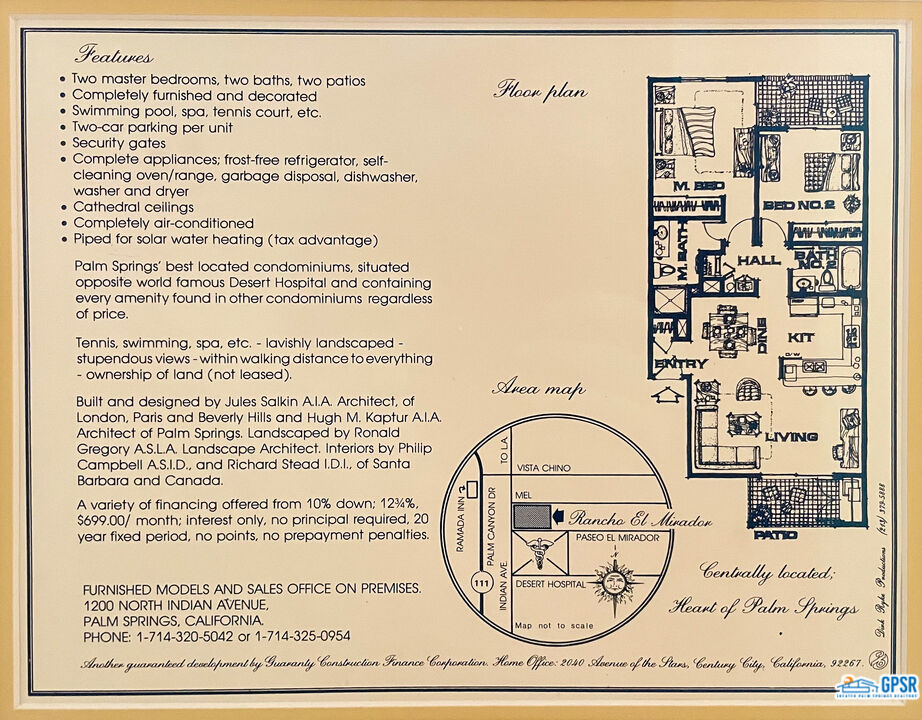 Features
• Two master bedrooms, two baths, two patios
• Completely furnished and decorated
• Swimming pool, spa, tennis court, etc.
• Two-car parking per unit
• Security gates
• Complete appliances; frost-free refrigerator, self-
cleaning oven/range, garbage disposal, dishwasher,
washer and dryer
• Cathedral ceilings
• Completely air-conditioned
• Piped for solar water heating (tax advantage)
Palm Springs' best located condominiums, situated
opposite world famous Desert Hospital and containing
every amenity found in other condominiums regardless
of price.
Tennis, swimming, spa, etc. - lavishly landscaped -
stupendous views - within walking distance to everything
- ownership of land (not leased).
Built and designed by Jules Salkin A.I.A. Architect, of
London, Paris and Beverly Hills and Hugh M. Kaptur A.I.A.
Architect of Palm Springs. Landscaped by Ronald
Gregory A.S.L.A. Landscape Architect. Interiors by Philip
Campbell A.S.I.D., and Richard Stead I.D.I., of Santa
Barbara and Canada.
A variety of financing offered from 10% down; 12¾%,
$699.00/ month; interest only, no principal required, 20
year fixed period, no points, no prepayment penalties.
FURNISHED MODELS AND SALES OFFICE ON PREMISES.
1200 NORTH INDIAN AVENUE,
PALM SPRINGS, CALIFORNIA.
PHONE: 1-714-320-5042 or 1-714-325-0954
Floor plan
M. BED
BED NO. 2
M. BATH
HALL
BATH
NO. 2
DINE
KIT
D/W
ENTRY
LIVING
PATIO
Area map
TO L.A.
VISTA CHINO
MEL
RAMADA INN
PALM CANYON DR
Rancho El Mirador
PASEO EL MIRADOR
N
111
INDIAN AVE
DESERT HOSPITAL
Map not to scale
Centrally located;
Heart of Palm Springs
Productions
Another guaranteed development by Guaranty Construction Finance Corporation. Home Office: 2040 Avenue of the Stars, Century City, California, 92267.
GPSR
GREATER PALM SPRINGS REALTORS